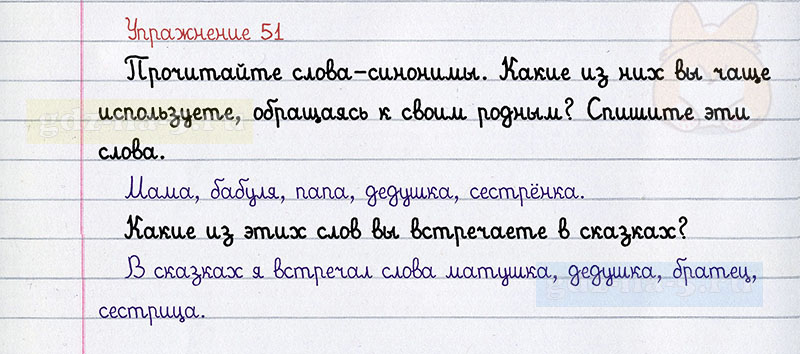 Упражнение 51
Прочитайте слова-синонимы. Какие из них вы чаще
используете, обращаясь к своим родным? Спишите эти
слова.
Мама, бабуля, папа, дедушка, сестрёнка.
Какие из этих слов вы встречаете в сказках?
В сказках я встречал слова матушка, дедушка, братец,
сестрица.